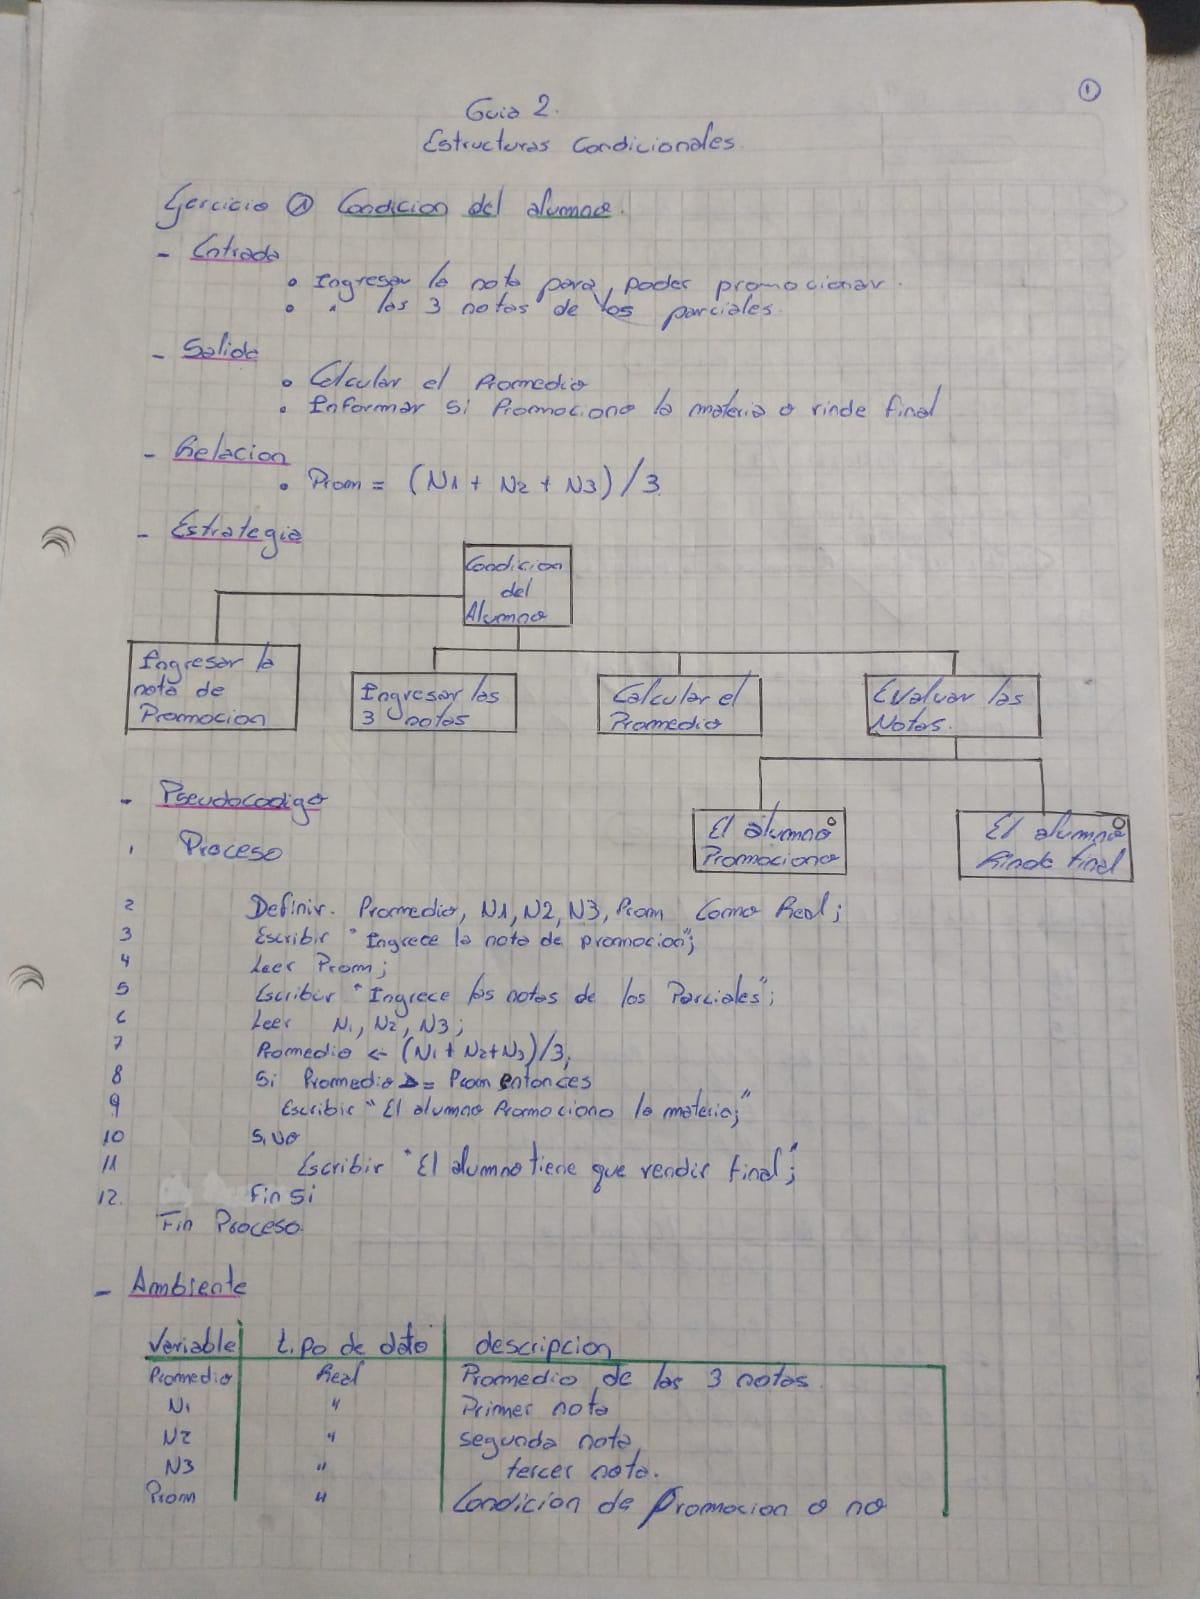 ①
Guia 2.
Estructuras Condicionales.
Ejercicio ① Condicion del alumno.
- Entrada
• Ingresar la nota para poder promocionar.
• " las 3 notas de los parciales.
- Salida
• Calcular el Promedio
• Informar si Promociono la materia o rinde final
- Relacion
• Prom = (N1 + N2 + N3) / 3.
- Estrategia
Condicion
del
Alumno
Ingresar la
nota de
Promocion
Ingresar las
3 notas
Calcular el
Promedio
Evaluar las
Notas.
El alumno
Promociono
El alumno
Rinde final
- Pseudocodigo
1 Proceso
2 Definir. Promedio, N1, N2, N3, Prom Como Real;
3 Escribir "Ingrece la nota de promocion";
4 Leer Prom;
5 Escribir "Ingrece las notas de los Parciales";
6 Leer N1, N2, N3;
7 Promedio <- (N1 + N2+N3)/3;
8 Si Promedio >= Prom entonces
9 Escribir "El alumno Promociono la materia;"
10 SiNo
11 Escribir "El alumno tiene que rendir final";
12. Fin Si
Fin Proceso.
- Ambiente
Variable tipo de dato descripcion
Promedio Real Promedio de las 3 notas.
N1 " Primer nota
N2 " segunda nota
N3 " tercer nota.
Prom " Condicion de Promocion o no